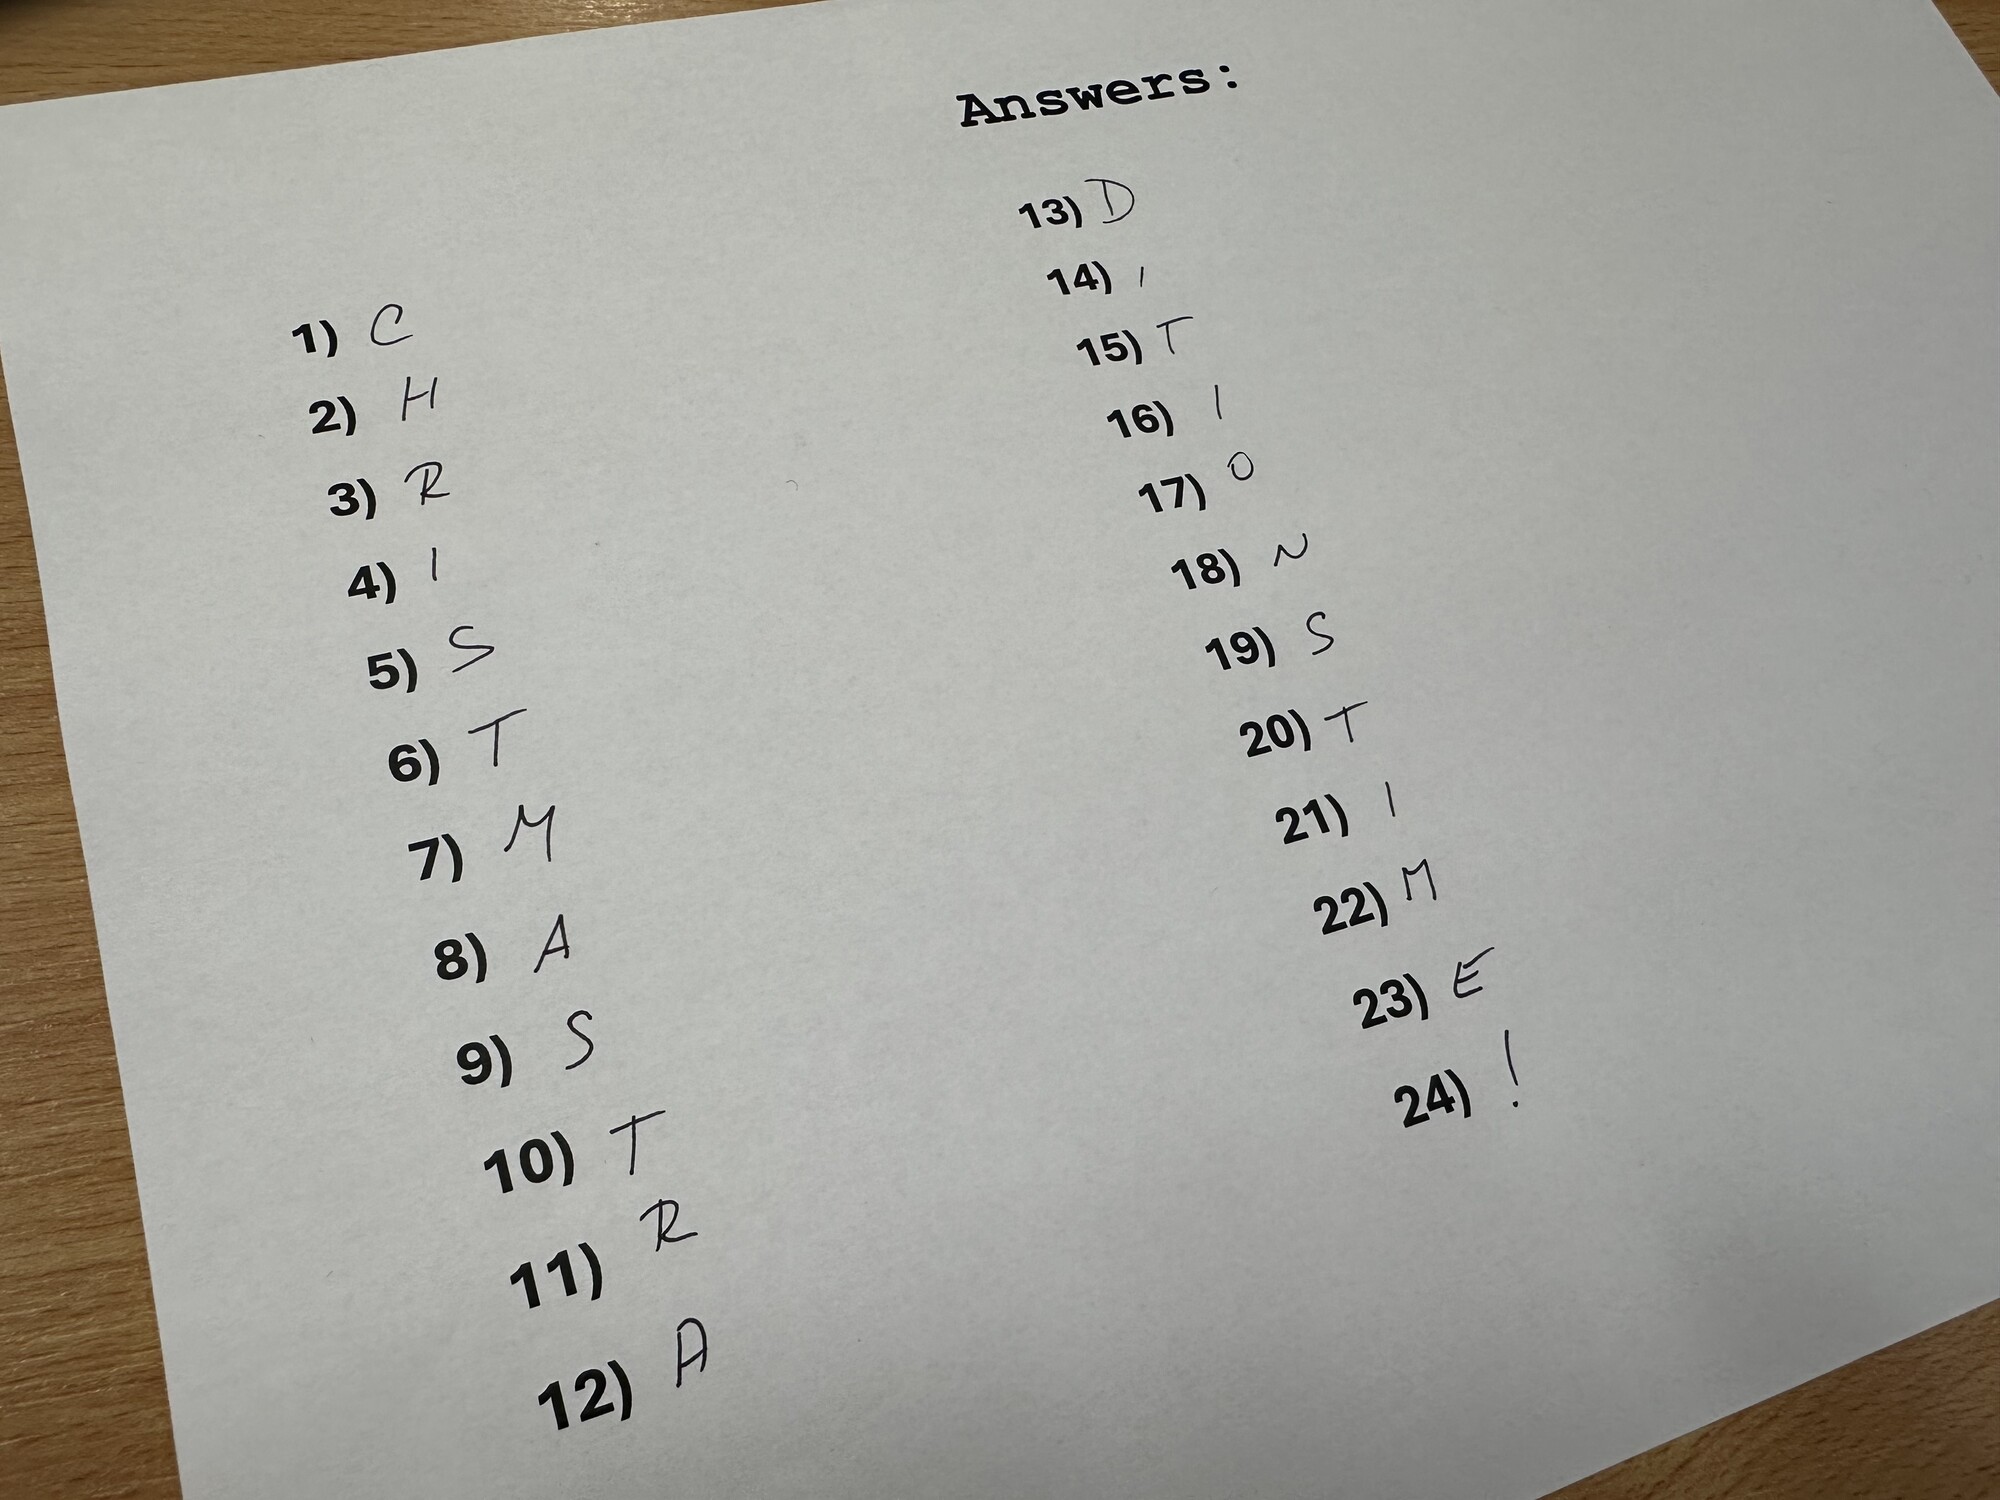 Answers:
1) C
2) H
3) R
4) I
5) S
6) T
7) M
8) A
9) S
10) T
11) R
12) A
13) D
14) I
15) T
16) I
17) O
18) N
19) S
20) T
21) I
22) M
23) E
24) !